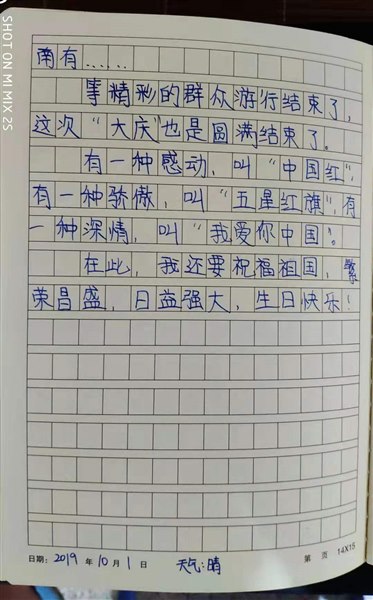 SHOT ON MI MIX 2S
南有……
事精彩的群众游行结束了，
这次“大庆”也是圆满结束了。
有一种感动，叫“中国红”，
有一种骄傲，叫“五星红旗”，有
一种深情，叫“我爱你中国”。
在此，我还要祝福祖国，繁
荣昌盛，日益强大，生日快乐！
日期：2019 年 10 月 1 日 天气：晴 第 页 14X15